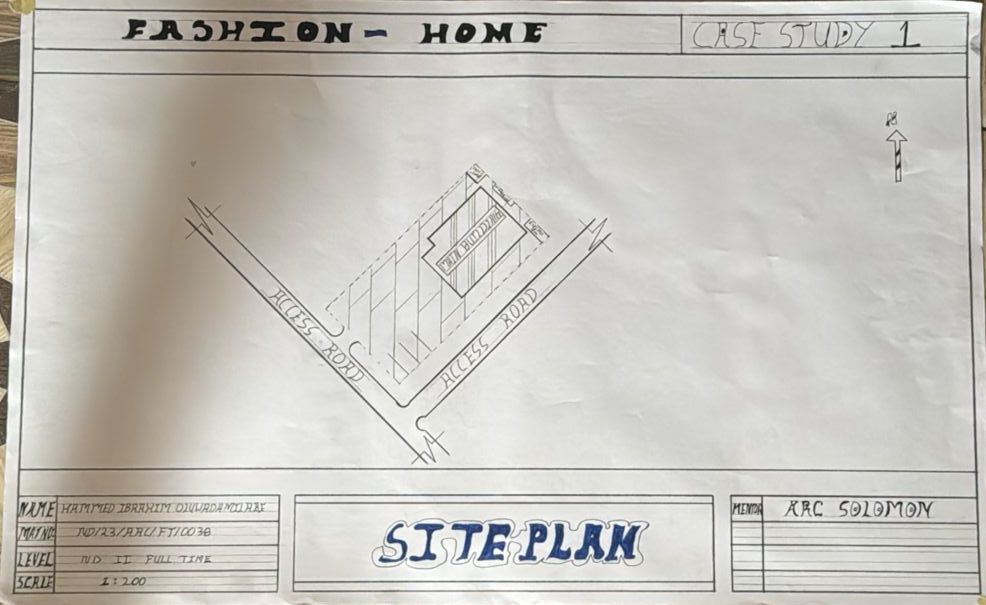 FASHION - HOME
CASE STUDY 1
N
MAIN BUILDING
ACCESS ROAD
ACCESS ROAD
NAME HAMMED IBRAHIM OLUWADAMILARE
MAT NO ND/23/ARC/FT/0038
LEVEL ND II FULL TIME
SCALE 1:200
SITE PLAN
MENTOR ARC SOLOMON